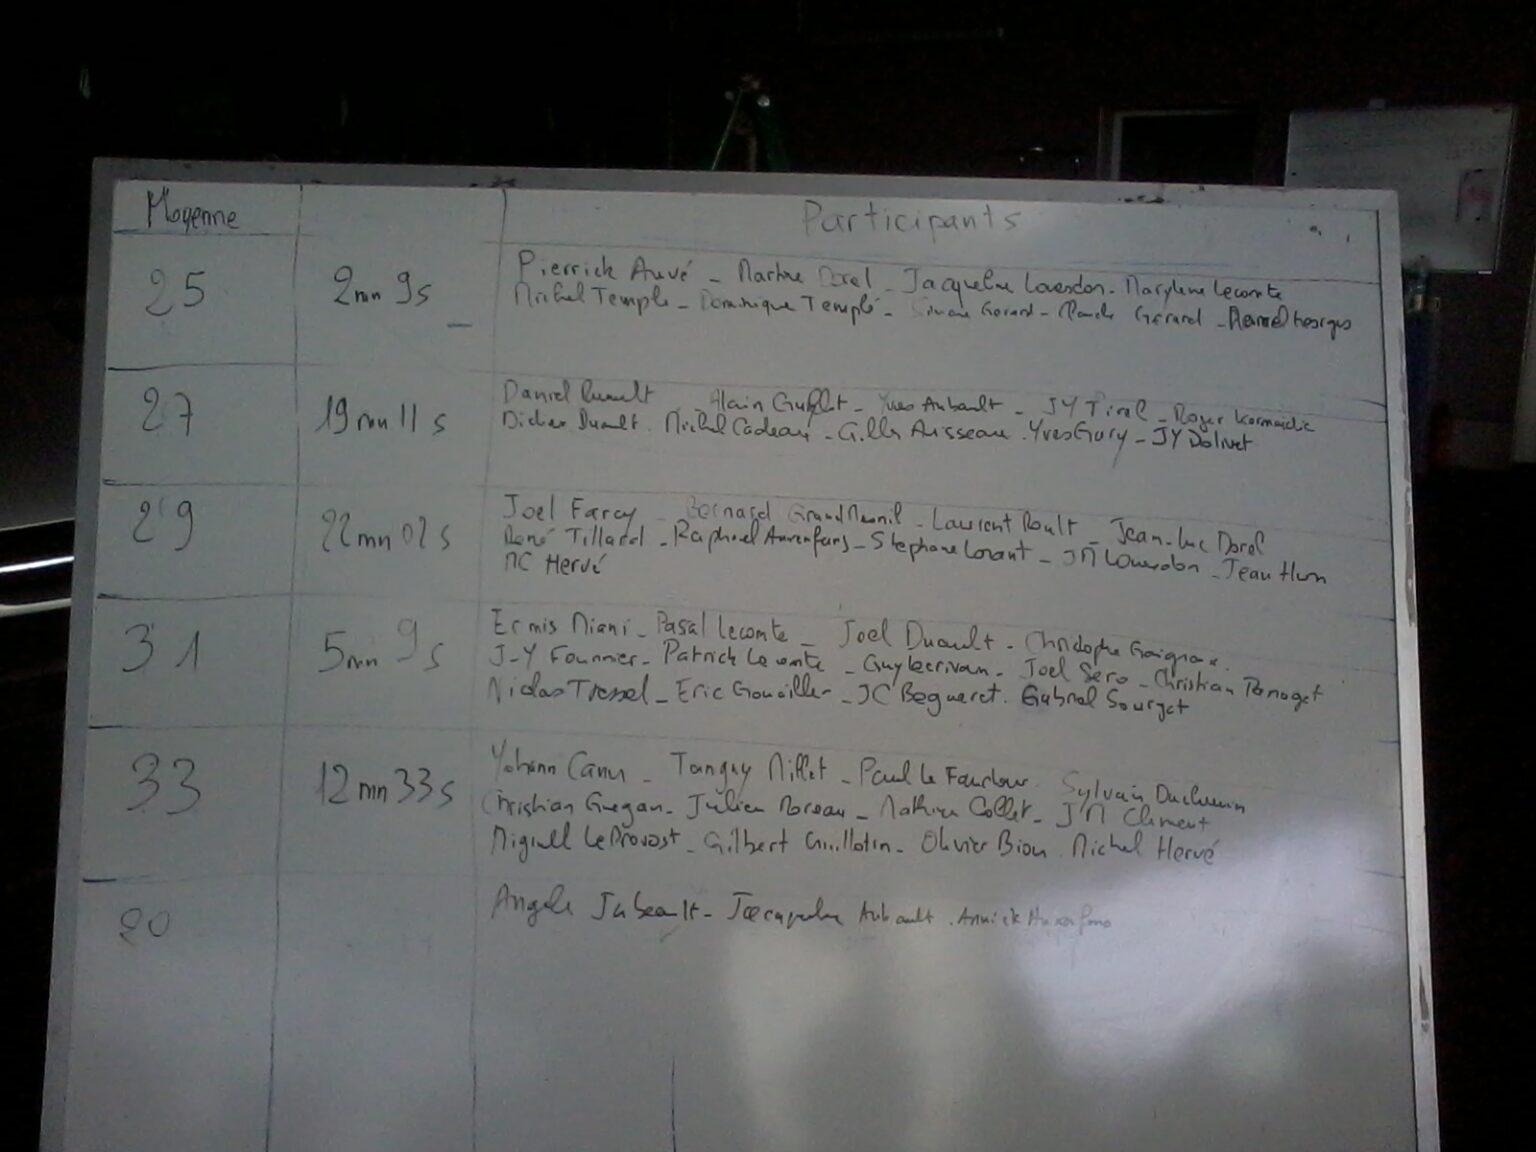 Moyenne Participants
25 2mn 9s Pierrick Auvé - Martine Dorel - Jacqueline Louesdon - Marylene Lecomte
Michel Temple - Dominique Templé - Simone Gerard - Gérard - Georges
27 19mn 11s Daniel Alain - Yves Aubault - JY Tirel - Roger
Didier Duault - Michel Cadeau - Gilles - Yves Gury - JY Dolivet
29 22mn 02s Joel Farcy - Bernard GrandMesnil - Laurent Roult - Jean-Luc Dorel
René Tillard - Raphael - Stephane Lorant - JM Louesdon - Jean
MC Hervé
31 5mn 9s Ermis Miani - Pasal Lecomte - Joel Duault - Christophe
J-Y Fournier - Patrick Lecomte - Guy Lecrivain - Joel Sero - Christian
Nicolas Tressel - Eric - JC Begueret - Gabriel Sourget
33 12mn 33s Yohann Canu - Tanguy Millet - Paul Le - Sylvain Duchemin
Christian Guegan - Julien Moreau - Mathieu Collet - JM Clement
Miguel Le Provost - Gilbert Guillotin - Olivier Biou - Michel Hervé
20 Angele - Jacqueline Aubault - Annick